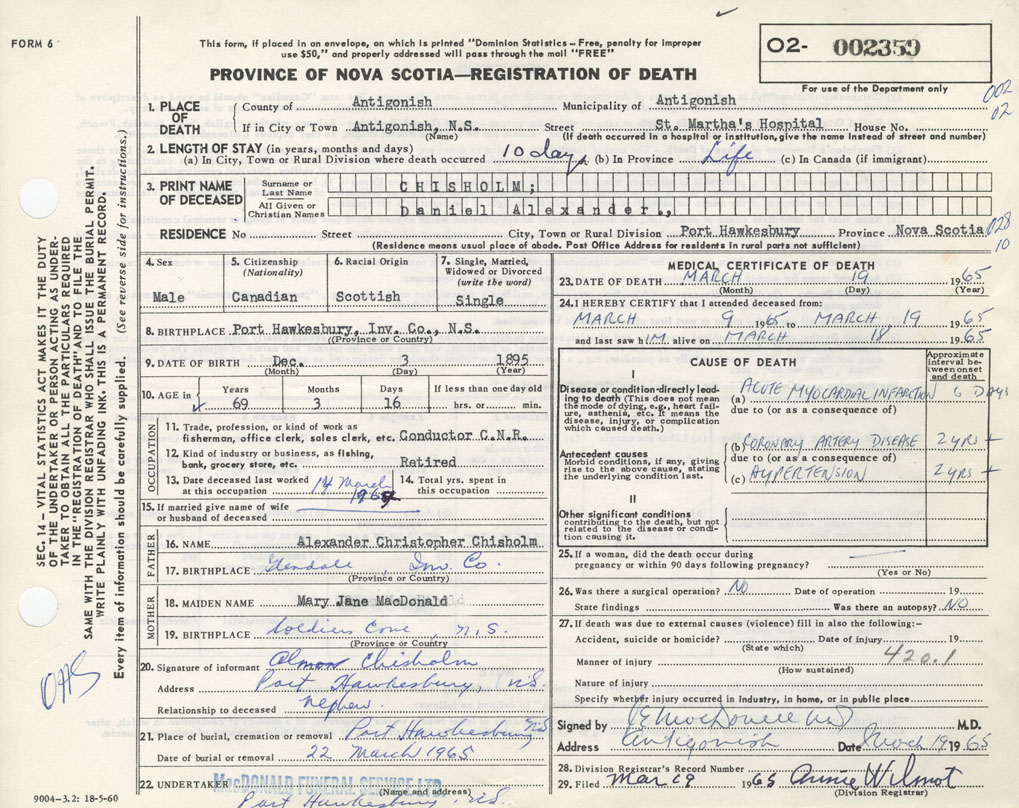 FORM 6
This form, if placed in an envelope, on which is printed "Dominion Statistics – Free, penalty for improper
use $50," and properly addressed will pass through the mail "FREE"
02- 002359
For use of the Department only
PROVINCE OF NOVA SCOTIA—REGISTRATION OF DEATH
002
02
1. PLACE OF DEATH
County of Antigonish Municipality of Antigonish
If in City or Town Antigonish, N.S. Street St. Martha's Hospital House No.
(Name) (If death occurred in a hospital or institution, give the name instead of street and number)
2. LENGTH OF STAY (in years, months and days)
(a) In City, Town or Rural Division where death occurred 10 days (b) In Province Life (c) In Canada (if immigrant)
3. PRINT NAME OF DECEASED
Surname or Last Name CHISHOLM;
All Given or Christian Names Daniel Alexander.,
RESIDENCE No Street City, Town or Rural Division Port Hawkesbury Province Nova Scotia
028
10
(Residence means usual place of abode. Post Office Address for residents in rural parts not sufficient)
4. Sex
Male
5. Citizenship (Nationality)
Canadian
6. Racial Origin
Scottish
7. Single, Married, Widowed or Divorced (write the word)
Single
8. BIRTHPLACE Port Hawkesbury, Inv. Co., N.S.
(Province or Country)
9. DATE OF BIRTH Dec. 3 1895
(Month) (Day) (Year)
10. AGE in Years 69 Months 3 Days 16 If less than one day old hrs. or min.
OCCUPATION
11. Trade, profession, or kind of work as
fisherman, office clerk, sales clerk, etc. Conductor C.N.R.
12. Kind of industry or business, as fishing,
bank, grocery store, etc. Retired
13. Date deceased last worked at this occupation 14 March
14. Total yrs. spent in this occupation
15. If married give name of wife
or husband of deceased
FATHER
16. NAME Alexander Christopher Chisholm
17. BIRTHPLACE Glendale, Inv. Co.
(Province or Country)
MOTHER
18. MAIDEN NAME Mary Jane MacDonald
19. BIRTHPLACE Soldiers Cove, N.S.
(Province or Country)
20. Signature of informant Almon Chisholm
Address Port Hawkesbury, N.S.
Relationship to deceased nephew.
21. Place of burial, cremation or removal Port Hawkesbury NS
Date of burial or removal 22 March 1965
22. UNDERTAKER MacDONALD FUNERAL SERVICE LTD.
(Name and address)
Port Hawkesbury, N.S.
MEDICAL CERTIFICATE OF DEATH
23. DATE OF DEATH MARCH 19 1965
(Month) (Day) (Year)
24. I HEREBY CERTIFY that I attended deceased from:
MARCH 9 1965 to MARCH 19 1965
and last saw hIM alive on MARCH 18 1965
CAUSE OF DEATH
Approximate interval between onset and death
I
Disease or condition directly leading to death (This does not mean the mode of dying, e.g., heart failure, asthenia, etc. It means the disease, injury, or complication which caused death.)
(a) ACUTE MYOCARDIAL INFARCTION 6 DAYS
due to (or as a consequence of)
Antecedent causes
Morbid conditions, if any, giving rise to the above cause, stating the underlying condition last.
(b) CORONARY ARTERY DISEASE 2 YRS +
due to (or as a consequence of)
(c) HYPERTENSION 2 YRS +
II
Other significant conditions
contributing to the death, but not related to the disease or condition causing it.
25. If a woman, did the death occur during
pregnancy or within 90 days following pregnancy?
(Yes or No)
26. Was there a surgical operation? NO Date of operation 19
State findings Was there an autopsy? NO
27. If death was due to external causes (violence) fill in also the following:-
Accident, suicide or homicide? Date of injury 19
(State which)
420.1
Manner of injury
(How sustained)
Nature of injury
Specify whether injury occurred in industry, in home, or in public place
Signed by M.D.
Address Antigonish Date March 19 1965
28. Division Registrar's Record Number
29. Filed Mar 19 1965 Annie Wilmot
(Division Registrar)
SEC. 14 – VITAL STATISTICS ACT MAKES IT THE DUTY
OF THE UNDERTAKER OR PERSON ACTING AS UNDER-
TAKER TO OBTAIN ALL THE PARTICULARS REQUIRED
IN THE "REGISTRATION OF DEATH" AND TO FILE THE
SAME WITH THE DIVISION REGISTRAR WHO SHALL ISSUE THE BURIAL PERMIT.
WRITE PLAINLY WITH UNFADING INK. THIS IS A PERMANENT RECORD.
Every item of information should be carefully supplied. (See reverse side for instructions.)
9004–3.2: 18-5-60